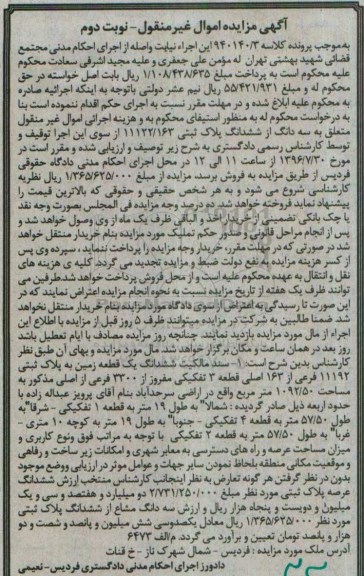 آگهی مزایده اموال غیر منقول - نوبت دوم
به موجب پرونده کلاسه ۹۴۰۱۴۰/۳ این اجراء نیابت واصله از اجرای احکام مدنی مجتمع
قضائی شهید بهشتی تهران له مؤمن علی جعفری و علیه مجید اشرفی سعادت محکوم
علیه محکوم است به پرداخت مبلغ ۱/۱۰۸/۴۳۸/۶۳۵ ریال بابت اصل خواسته در حق
محکوم له و مبلغ ۵۵/۴۲۱/۹۳۱ ریال نیم عشر دولتی باتوجه به اینکه اجرائیه صادره
به محکوم علیه ابلاغ شده و در مهلت مقرر نسبت به اجرای حکم اقدام ننموده است بنا
به درخواست محکوم له به منظور استیفای محکوم به و هزینه اجرائی اموال غیر منقول
متعلق به سه دانگ از ششدانگ پلاک ثبتی ۱۱۱۲۲/۱۶۳ از سوی این اجرا توقیف و
توسط کارشناس رسمی دادگستری به شرح زیر توصیف و ارزیابی شده و مقرر است در
مورخ ۱۳۹۶/۷/۳۰ از ساعت ۱۱ الی ۱۲ در محل اجرای احکام مدنی دادگاه حقوقی
فردیس از طریق مزایده به فروش برسد، مزایده از مبلغ ۱/۳۶۵/۶۲۵/۰۰۰ ریال نظریه
کارشناسی شروع می شود و به هر شخص حقیقی و حقوقی که بالاترین قیمت را
پیشنهاد نماید فروخته خواهد شد. ده درصد وجه مزایده فی المجلس بصورت وجه نقد
یا چک بانکی تضمینی از خریدار اخذ و الباقی ظرف یک ماه از وی وصول خواهد شد و
پس از انجام مراحل قانونی و صدور حکم تملیک مورد مزایده بنام خریدار منتقل خواهد
شد در صورتی که در مهلت مقرر، خریدار وجه مزایده را پرداخت ننماید، سپرده وی پس
از کسر هزینه مزایده به نفع دولت ضبط و مزایده تجدید می گردد. کلیه ی هزینه های
نقل و انتقال به عهده محکوم علیه است و از محل فروش پرداخت خواهد شد طرفین می
توانند ظرف یک هفته از تاریخ مزایده نسبت به نحوه انجام مزایده اعتراض نمایند که در
این صورت تا رسیدگی به اعتراض از سوی دادگاه مورد مزایده بنام خریدار منتقل نخواهد
شد. ضمنا طالبین به شرکت در مزایده میتوانند ظرف ۵ روز قبل از مزایده با اطلاع این
اجراء از مال مورد مزایده بازدید نمایند. چنانچه روز مزایده مصادف با ایام تعطیل باشد
روز بعد در همان ساعت و مکان برگزار خواهد شد. مال مورد مزایده و بهای آن طبق نظر
کارشناس بدین شرح است: ۱- سند مالکیت ششدانگ یک قطعه زمین به پلاک ثبتی
۱۱۱۹۲ فرعی از ۱۶۳ اصلی قطعه ۳ تفکیکی مفروز از ۳۳۰۰ فرعی از اصلی مذکور به
مساحت ۱۰۹۲/۵۰ متر مربع واقع در اراضی سرحدآباد بنام آقای پرویز عبداله زاده با
حدود اربعه ذیل صادر گردیده : شمالا" به طول ۱۹ متر به قطعه ۱ تفکیکی - شرقا" به
طول ۵۷/۵۰ متر به قطعه ۴ تفکیکی - جنوبا" به طول ۱۹ متر به کوچه ۱۰ متری -
غربا" به طول ۵۷/۵۰ متر به قطعه ۲ تفکیکی با توجه به مراتب فوق ونوع کاربری و
میزان مساحت عرصه و راه های دسترسی به معابر شهری و امکانات زیر ساخت و رفاهی
و موقعیت مکانی منطقه بلحاظ نمودن سایر جهات و عوامل موثر در ارزیابی ووضع موجود
بدون در نظر گرفتن هر گونه تعارض به نظر اینجانب کارشناس منتخب ارزش ششدانگ
عرصه پلاک ثبتی مورد نظر مبلغ ۲/۷۳۱/۲۵۰/۰۰۰ دو میلیارد و هفتصد و سی و یک
میلیون و دویست و پنجاه هزار ریال و ارزش سه دانگ مشاع از ششدانگ پلاک ثبتی
مورد نظر ۱/۳۶۵/۶۲۵/۰۰۰ ریال معادل یکصدوسی شش میلیون و پانصد و شصت و دو
هزار و پانصد تومان تعیین و برآورد می گردد. م/الف ۶۴۷۳
آدرس ملک مورد مزایده : فردیس - شمال شهرک ناز - خ قنات
دادورز اجرای احکام مدنی دادگستری فردیس - نعیمی